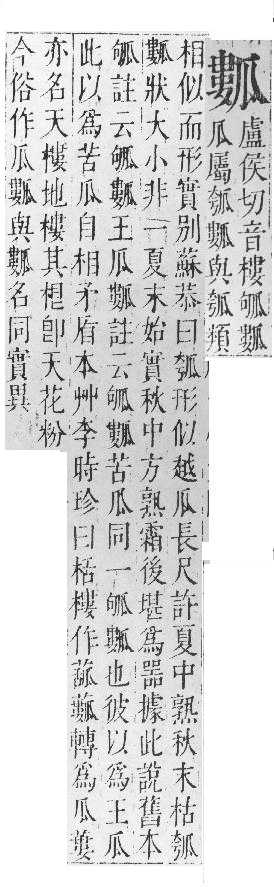 𤬏
盧侯切音樓𤬏
瓜屬瓠𤬏與瓠類
相似而形實別蘇恭曰瓠形似越瓜長尺許夏中熟秋末枯瓠
𤬏狀大小非一夏末始實秋中方熟霜後堪爲器據此說舊本
註云𤬏王瓜𤬏註云𤬏苦瓜同一𤬏也彼以爲王瓜
此以爲苦瓜自相矛盾本艸李時珍曰栝樓作轉爲瓜蔞
亦名天樓地樓其根卽天花粉
今俗作瓜𤬏與𤬏名同實異